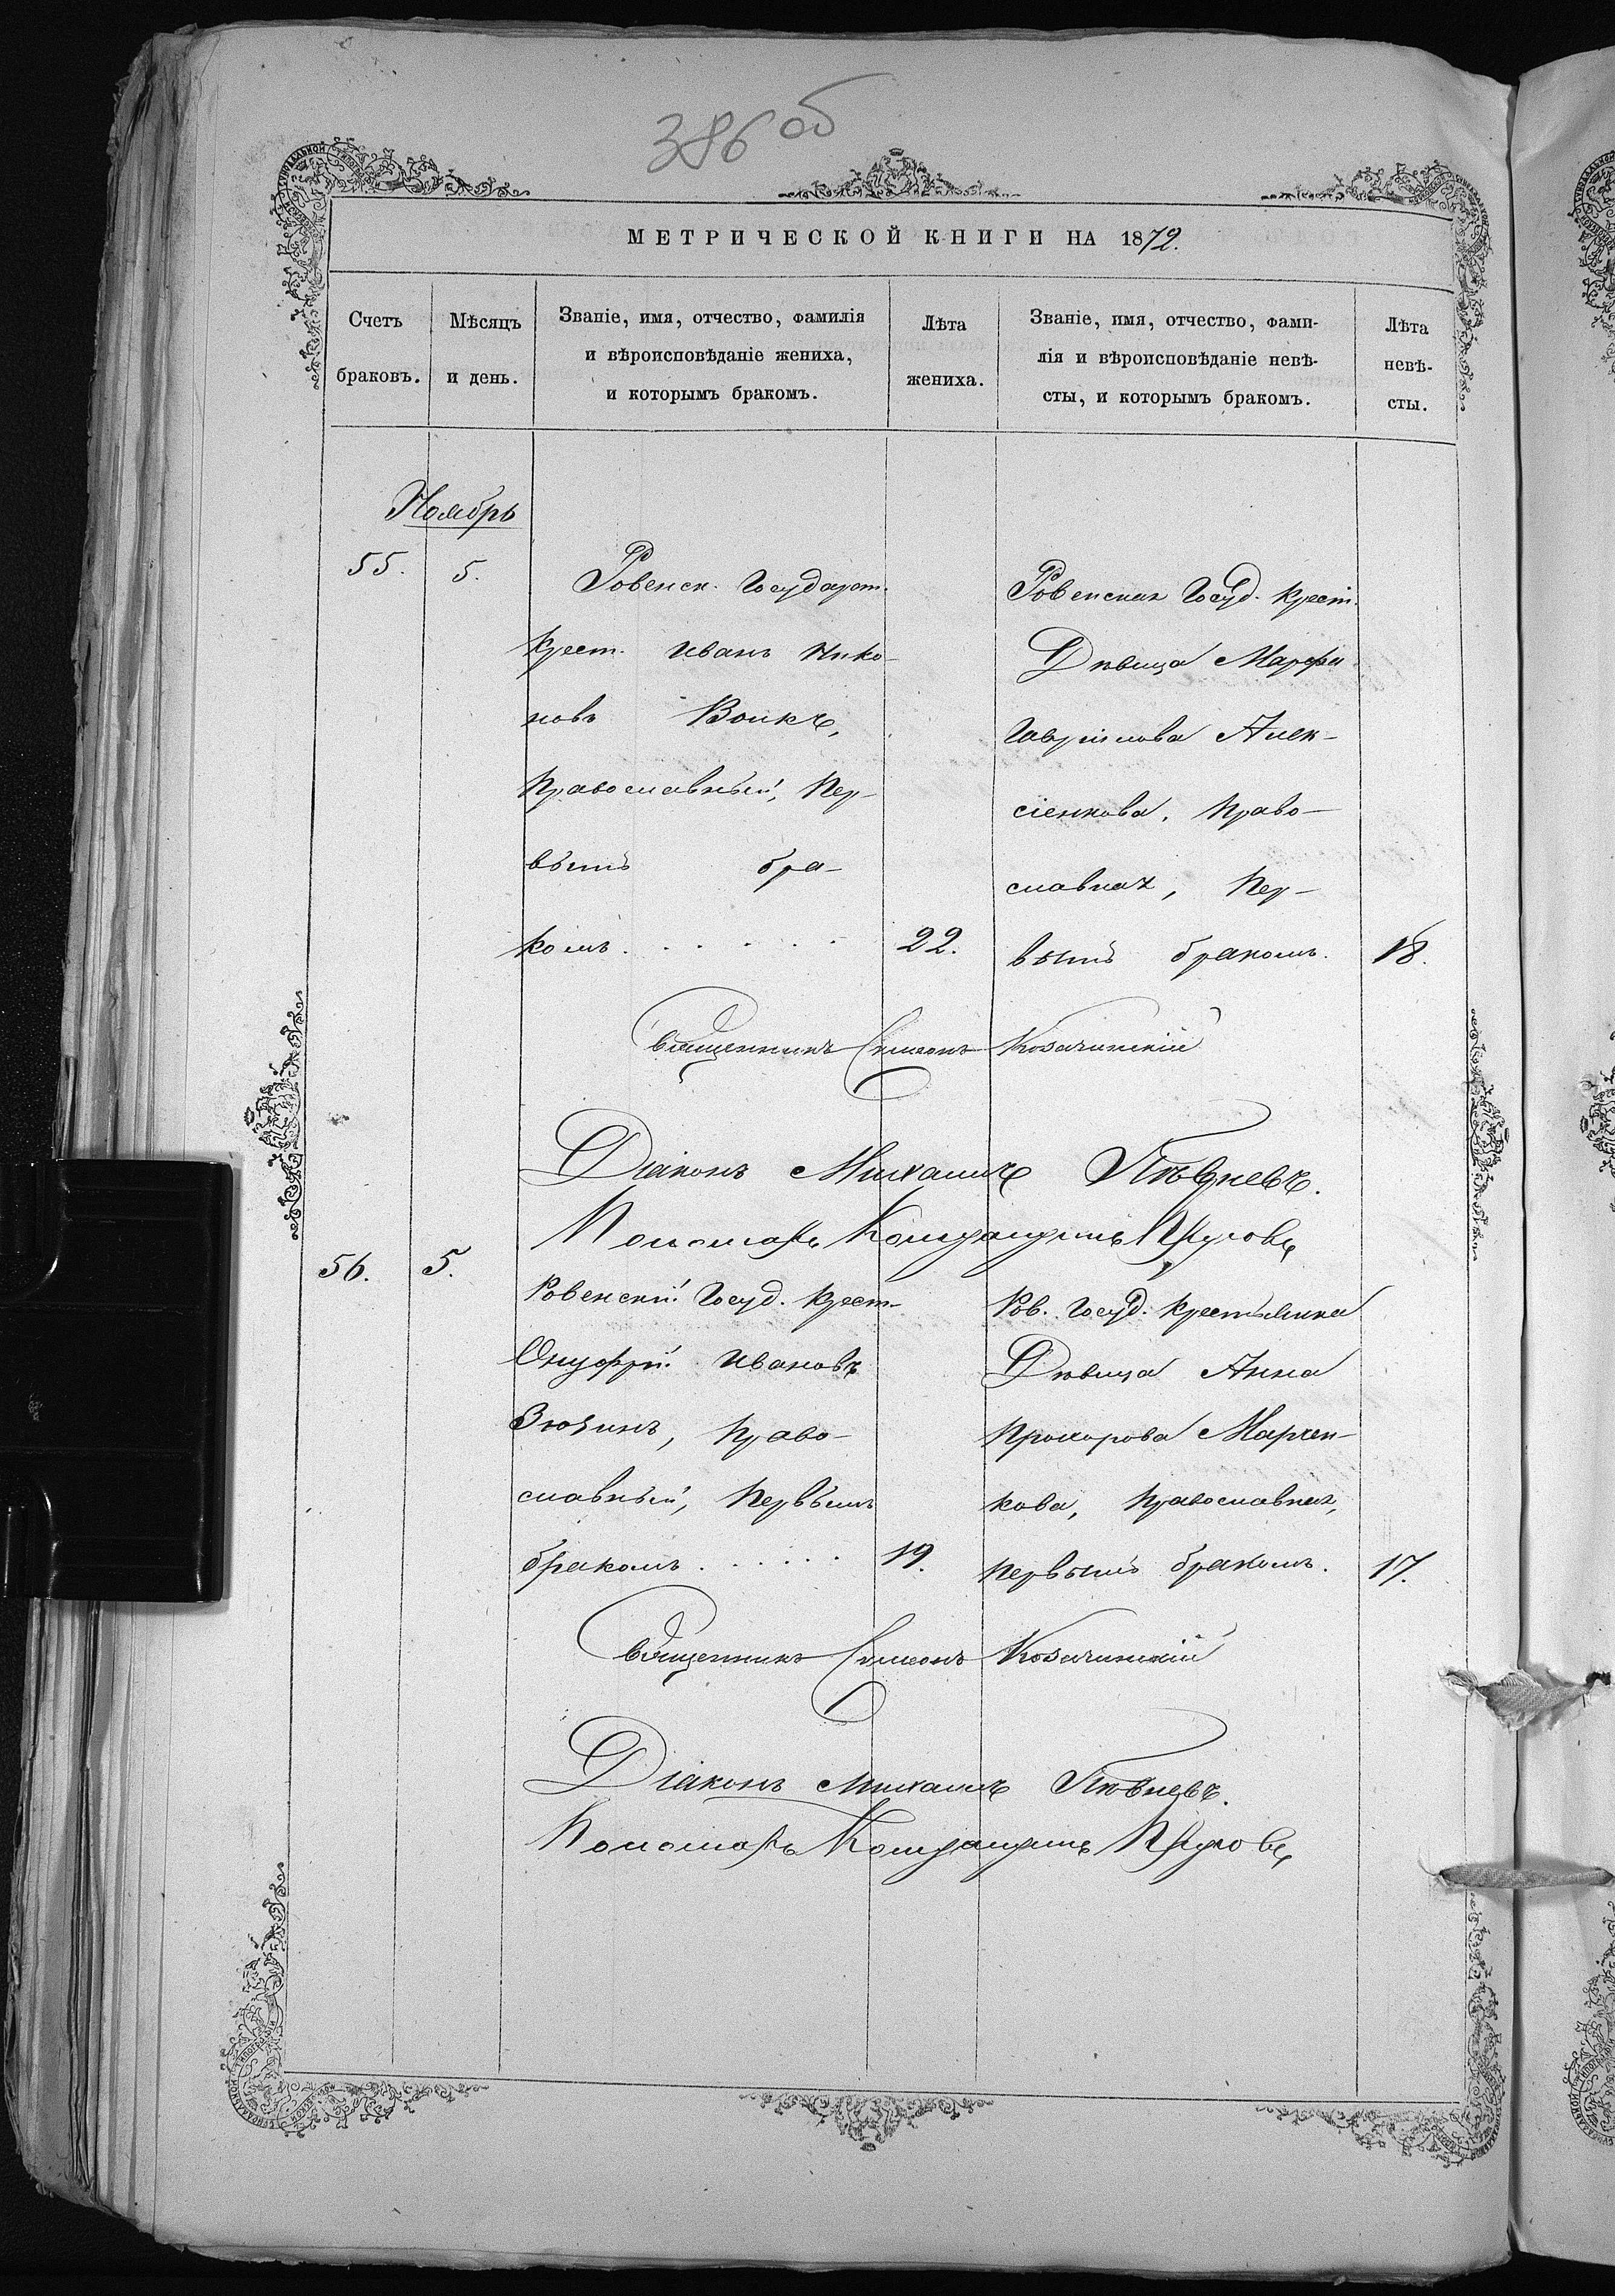 386 об
МЕТРИЧЕСКОЙ КНИГИ НА 1872.
Счетъ браковъ.
Мѣсяцъ и день.
Званіе, имя, отчество, фамилія
и вѣроисповѣданіе жениха,
и которымъ бракомъ.
Лѣта
жениха.
Званіе, имя, отчество, фами-
лія и вѣроисповѣданіе невѣ-
сты, и которымъ бракомъ.
Лѣта
невѣ-
сты.
Ноябрь
55. 5.
Ровенск. Государст.
Крест. Иванъ Нико-
новъ Воикъ,
Православный, Пер-
вымъ бра-
комъ . . . . . . 22.
Ровенская Госуд. Крест.
Дѣвица Марфа
Гаврилова Алек-
сіенкова. Право-
славная, Пер-
вымъ бракомъ. 18.
Священникъ Симеонъ Козачинскій
Діаконъ Михаилъ
Пономарь
56. 5.
Ровенскій Госуд. Крест.
Онуфрій Ивановъ
Зюзинъ, Право-
славный, Первымъ
бракомъ . . . . . 19.
Ров. Госуд. Крестьянка
Дѣвица Анна
Прохорова Марчен-
кова, Православная,
Первымъ бракомъ. 17.
Священникъ Симеонъ Козачинскій
Діаконъ Михаилъ
Пономарь